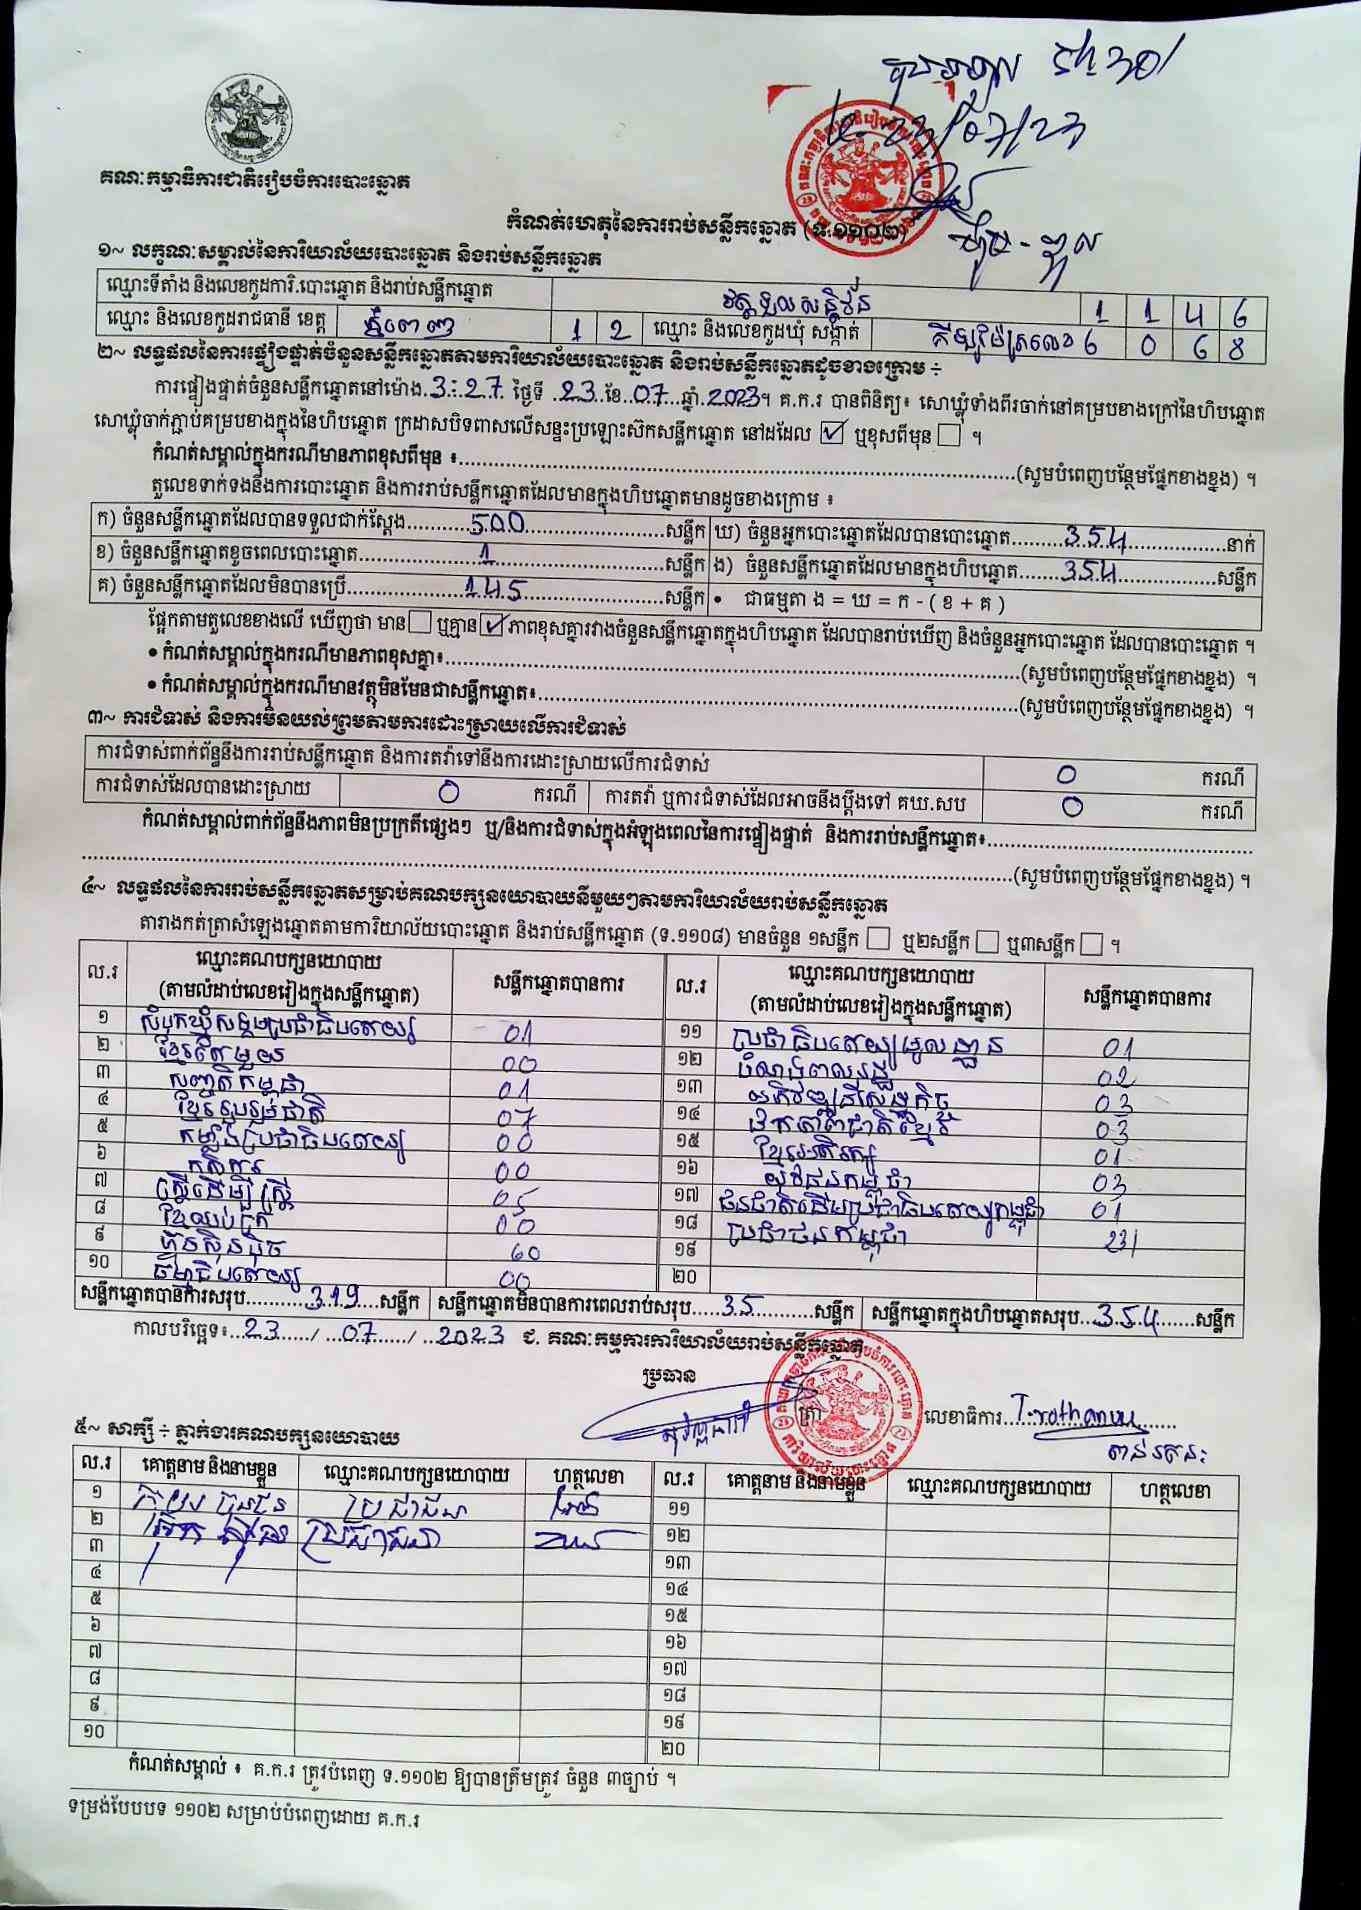 គណៈកម្មាធិការជាតិរៀបចំការបោះឆ្នោត
កំណត់ហេតុនៃការរាប់សន្លឹកឆ្នោត (ទ.១១០២)
១~ លក្ខណៈសម្គាល់នៃការិយាល័យបោះឆ្នោត និងរាប់សន្លឹកឆ្នោត
ឈ្មោះទីតាំង និងលេខកូដការិ.បោះឆ្នោត និងរាប់សន្លឹកឆ្នោត 1 1 4 6
ឈ្មោះ និងលេខកូដរាជធានី ខេត្ត ភ្នំពេញ 1 2 ឈ្មោះ និងលេខកូដឃុំ សង្កាត់ គីឡូម៉ែត្រលេខ6 0 6 8
២~ លទ្ធផលនៃការផ្ទៀងផ្ទាត់ចំនួនសន្លឹកឆ្នោតតាមការិយាល័យបោះឆ្នោត និងរាប់សន្លឹកឆ្នោតដូចខាងក្រោម ÷
ការផ្ទៀងផ្ទាត់ចំនួនសន្លឹកឆ្នោតនៅម៉ោង.3:27 ថ្ងៃទី.23.ខែ.07.ឆ្នាំ.2023។ គ.ក.រ បានពិនិត្យ៖ សោឃ្លុំទាំងពីរចាក់នៅគម្របខាងក្រៅនៃហិបឆ្នោត
សោឃ្លុំចាក់ភ្ជាប់គម្របខាងក្នុងនៃហិបឆ្នោត ក្រដាសបិទពាសលើសន្ទះប្រឡោះស៊កសន្លឹកឆ្នោត នៅដដែល ☑ ឬខុសពីមុន ☐ ។
កំណត់សម្គាល់ក្នុងករណីមានភាពខុសពីមុន ៖..........(សូមបំពេញបន្ថែមផ្នែកខាងខ្នង) ។
តួលេខទាក់ទងនឹងការបោះឆ្នោត និងការរាប់សន្លឹកឆ្នោតដែលមានក្នុងហិបឆ្នោតមានដូចខាងក្រោម ៖
ក) ចំនួនសន្លឹកឆ្នោតដែលបានទទួលជាក់ស្តែង.....500.....សន្លឹក ឃ) ចំនួនអ្នកបោះឆ្នោតដែលបានបោះឆ្នោត.....354.....នាក់
ខ) ចំនួនសន្លឹកឆ្នោតខូចពេលបោះឆ្នោត.....1.....សន្លឹក ង) ចំនួនសន្លឹកឆ្នោតដែលមានក្នុងហិបឆ្នោត.....354.....សន្លឹក
គ) ចំនួនសន្លឹកឆ្នោតដែលមិនបានប្រើ.....145.....សន្លឹក • ជាធម្មតា ង = ឃ = ក - ( ខ + គ )
ផ្អែកតាមតួលេខខាងលើ ឃើញថា មាន☐ ឬគ្មាន☑ភាពខុសគ្នារវាងចំនួនសន្លឹកឆ្នោតក្នុងហិបឆ្នោត ដែលបានរាប់ឃើញ និងចំនួនអ្នកបោះឆ្នោត ដែលបានបោះឆ្នោត ។
• កំណត់សម្គាល់ក្នុងករណីមានភាពខុសគ្នា៖..........(សូមបំពេញបន្ថែមផ្នែកខាងខ្នង) ។
• កំណត់សម្គាល់ក្នុងករណីមានវត្ថុមិនមែនជាសន្លឹកឆ្នោត៖..........(សូមបំពេញបន្ថែមផ្នែកខាងខ្នង) ។
៣~ ការជំទាស់ និងការមិនយល់ព្រមតាមការដោះស្រាយលើការជំទាស់
ការជំទាស់ពាក់ព័ន្ធនឹងការរាប់សន្លឹកឆ្នោត និងការតវ៉ាទៅនឹងការដោះស្រាយលើការជំទាស់ 0 ករណី
ការជំទាស់ដែលបានដោះស្រាយ 0 ករណី ការតវ៉ា ឬការជំទាស់ដែលអាចនឹងប្តឹងទៅ គឃ.សប 0 ករណី
កំណត់សម្គាល់ពាក់ព័ន្ធនឹងភាពមិនប្រក្រតីផ្សេងៗ ឬ/និងការជំទាស់ក្នុងអំឡុងពេលនៃការផ្ទៀងផ្ទាត់ និងការរាប់សន្លឹកឆ្នោត៖..........
..........(សូមបំពេញបន្ថែមផ្នែកខាងខ្នង) ។
៤~ លទ្ធផលនៃការរាប់សន្លឹកឆ្នោតសម្រាប់គណបក្សនយោបាយនីមួយៗតាមការិយាល័យរាប់សន្លឹកឆ្នោត
តារាងកត់ត្រាសំឡេងឆ្នោតតាមការិយាល័យបោះឆ្នោត និងរាប់សន្លឹកឆ្នោត (ទ.១១០៨) មានចំនួន ១សន្លឹក ☐ ឬ២សន្លឹក ☐ ឬ៣សន្លឹក ☐ ។
ល.រ ឈ្មោះគណបក្សនយោបាយ (តាមលំដាប់លេខរៀងក្នុងសន្លឹកឆ្នោត) សន្លឹកឆ្នោតបានការ ល.រ ឈ្មោះគណបក្សនយោបាយ (តាមលំដាប់លេខរៀងក្នុងសន្លឹកឆ្នោត) សន្លឹកឆ្នោតបានការ
១ សំបុកឃ្មុំសង្គមប្រជាធិបតេយ្យ 01 ១១ ប្រជាធិបតេយ្យមូលដ្ឋាន 01
២ ខ្មែរតែមួយ 00 ១២ 02
៣ សញ្ជាតិកម្ពុជា 01 ១៣ អភិវឌ្ឍន៍សេដ្ឋកិច្ច 03
៤ ខ្មែររួបរួមជាតិ 07 ១៤ ឯកភាពជាតិខ្មែរ 03
៥ កម្លាំងប្រជាធិបតេយ្យ 00 ១៥ ខ្មែរអភិរក្ស 01
៦ កសិករ 00 ១៦ យុវជនកម្ពុជា 03
៧ ស្ត្រីដើម្បីស្ត្រី 05 ១៧ ជនជាតិដើមប្រជាធិបតេយ្យកម្ពុជា 01
៨ ខ្មែរឈប់ក្រ 00 ១៨ ប្រជាជនកម្ពុជា 231
៩ ហ៊្វុនស៊ិនប៉ិច 60 ១៩
១០ ធម្មាធិបតេយ្យ 00 ២០
សន្លឹកឆ្នោតបានការសរុប.....319.....សន្លឹក សន្លឹកឆ្នោតមិនបានការពេលរាប់សរុប.....35.....សន្លឹក សន្លឹកឆ្នោតក្នុងហិបឆ្នោតសរុប...354.....សន្លឹក
កាលបរិច្ឆេទ៖...23...../...07...../...2023 ជ. គណៈកម្មការការិយាល័យរាប់សន្លឹកឆ្នោត
ប្រធាន
ត្រា លេខាធិការ
៥~ សាក្សី ÷ ភ្នាក់ងារគណបក្សនយោបាយ
ល.រ គោត្តនាម និងនាមខ្លួន ឈ្មោះគណបក្សនយោបាយ ហត្ថលេខា ល.រ គោត្តនាម និងនាមខ្លួន ឈ្មោះគណបក្សនយោបាយ ហត្ថលេខា
១ ប្រជាជន ១១
២ ប្រជាជន ១២
៣ ១៣
៤ ១៤
៥ ១៥
៦ ១៦
៧ ១៧
៨ ១៨
៩ ១៩
១០ ២០
កំណត់សម្គាល់ ៖ គ.ក.រ ត្រូវបំពេញ ទ.១១០២ ឱ្យបានត្រឹមត្រូវ ចំនួន ៣ច្បាប់ ។
ទម្រង់បែបបទ ១១០២ សម្រាប់បំពេញដោយ គ.ក.រ